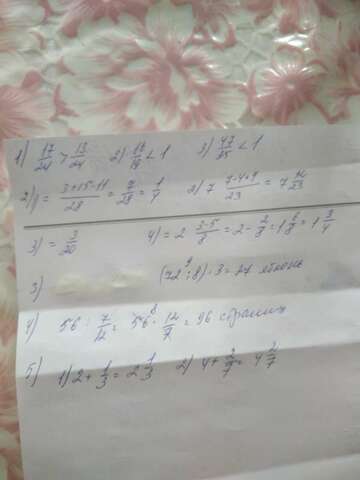 1) 17/24 > 13/24 2) 16/19 < 1 3) 47/35 < 1
2) 1) = (3+15-11)/28 = 7/28 = 1/4 2) 7 (7-4+9)/23 = 7 12/23
3) = 3/20 4) = 2 (3-5)/8 = 2 - 2/8 = 1 6/8 = 1 3/4
3) (72:8)·3 = 27 яблонь
4) 56 : 7/12 = 56 · 12/7 = 96 страниц
5) 1) 2 + 1/3 = 2 1/3 2) 4 + 2/7 = 4 2/7